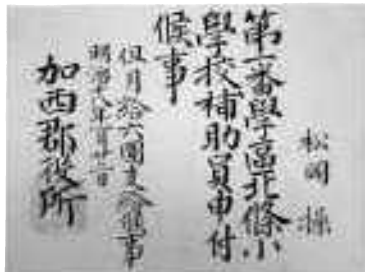 松岡 操
第一番學區北條小
學校補助員申付
候事
但月拾六圓支給候事
明治八年一月廿二日
加西郡役所